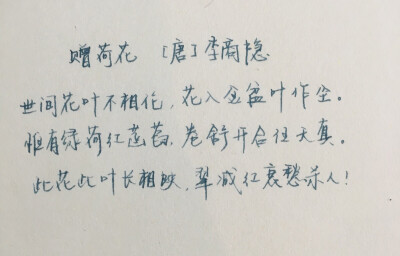 赠荷花 [唐] 李商隐
世间花叶不相伦，花入金盆叶作尘。
惟有绿荷红菡萏，卷舒开合任天真。
此花此叶长相映，翠减红衰愁杀人！